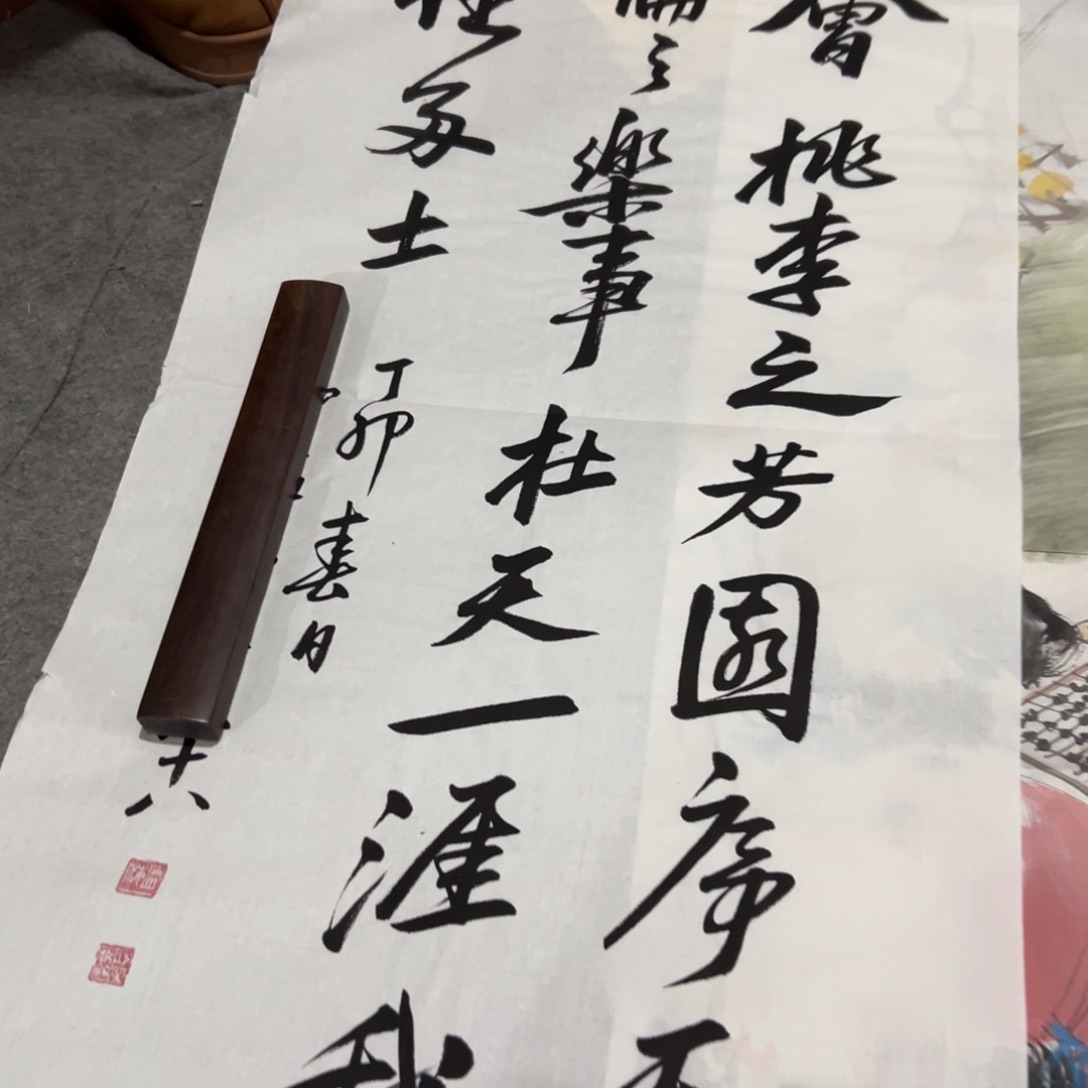 會桃李之芳園序天
倫之樂事杜天一涯我
多士丁卯春日
十八